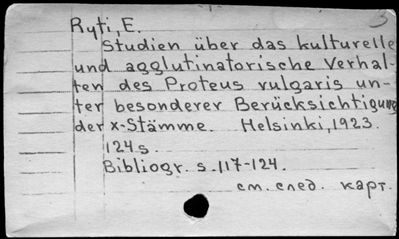 Ryti, E.
Studien über das kulturelle
und agglutinatorische Verhal-
ten des Proteus vulgaris un-
ter besonderer Berücksichtigung
der x-Stämme. Helsinki, 1923.
124 s.
Bibliogr. s. 117-124.
см. след. карт.